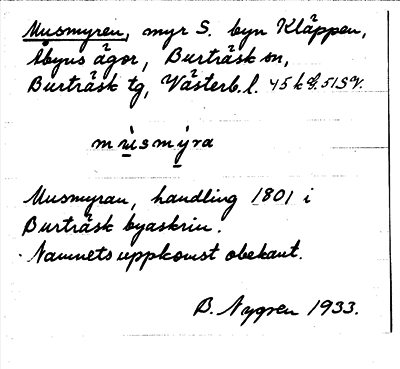 Musmyren, myr S. byn Kläppen,
Åbyns ägor, Burträsk sn,
Burträsk tg, Västerb. l. 45 k
mùsmýra
Musmyran, handling 1801 i
Burträsk byaskrin.
Namnets uppkomst obekant.
B. Nygren 1933.